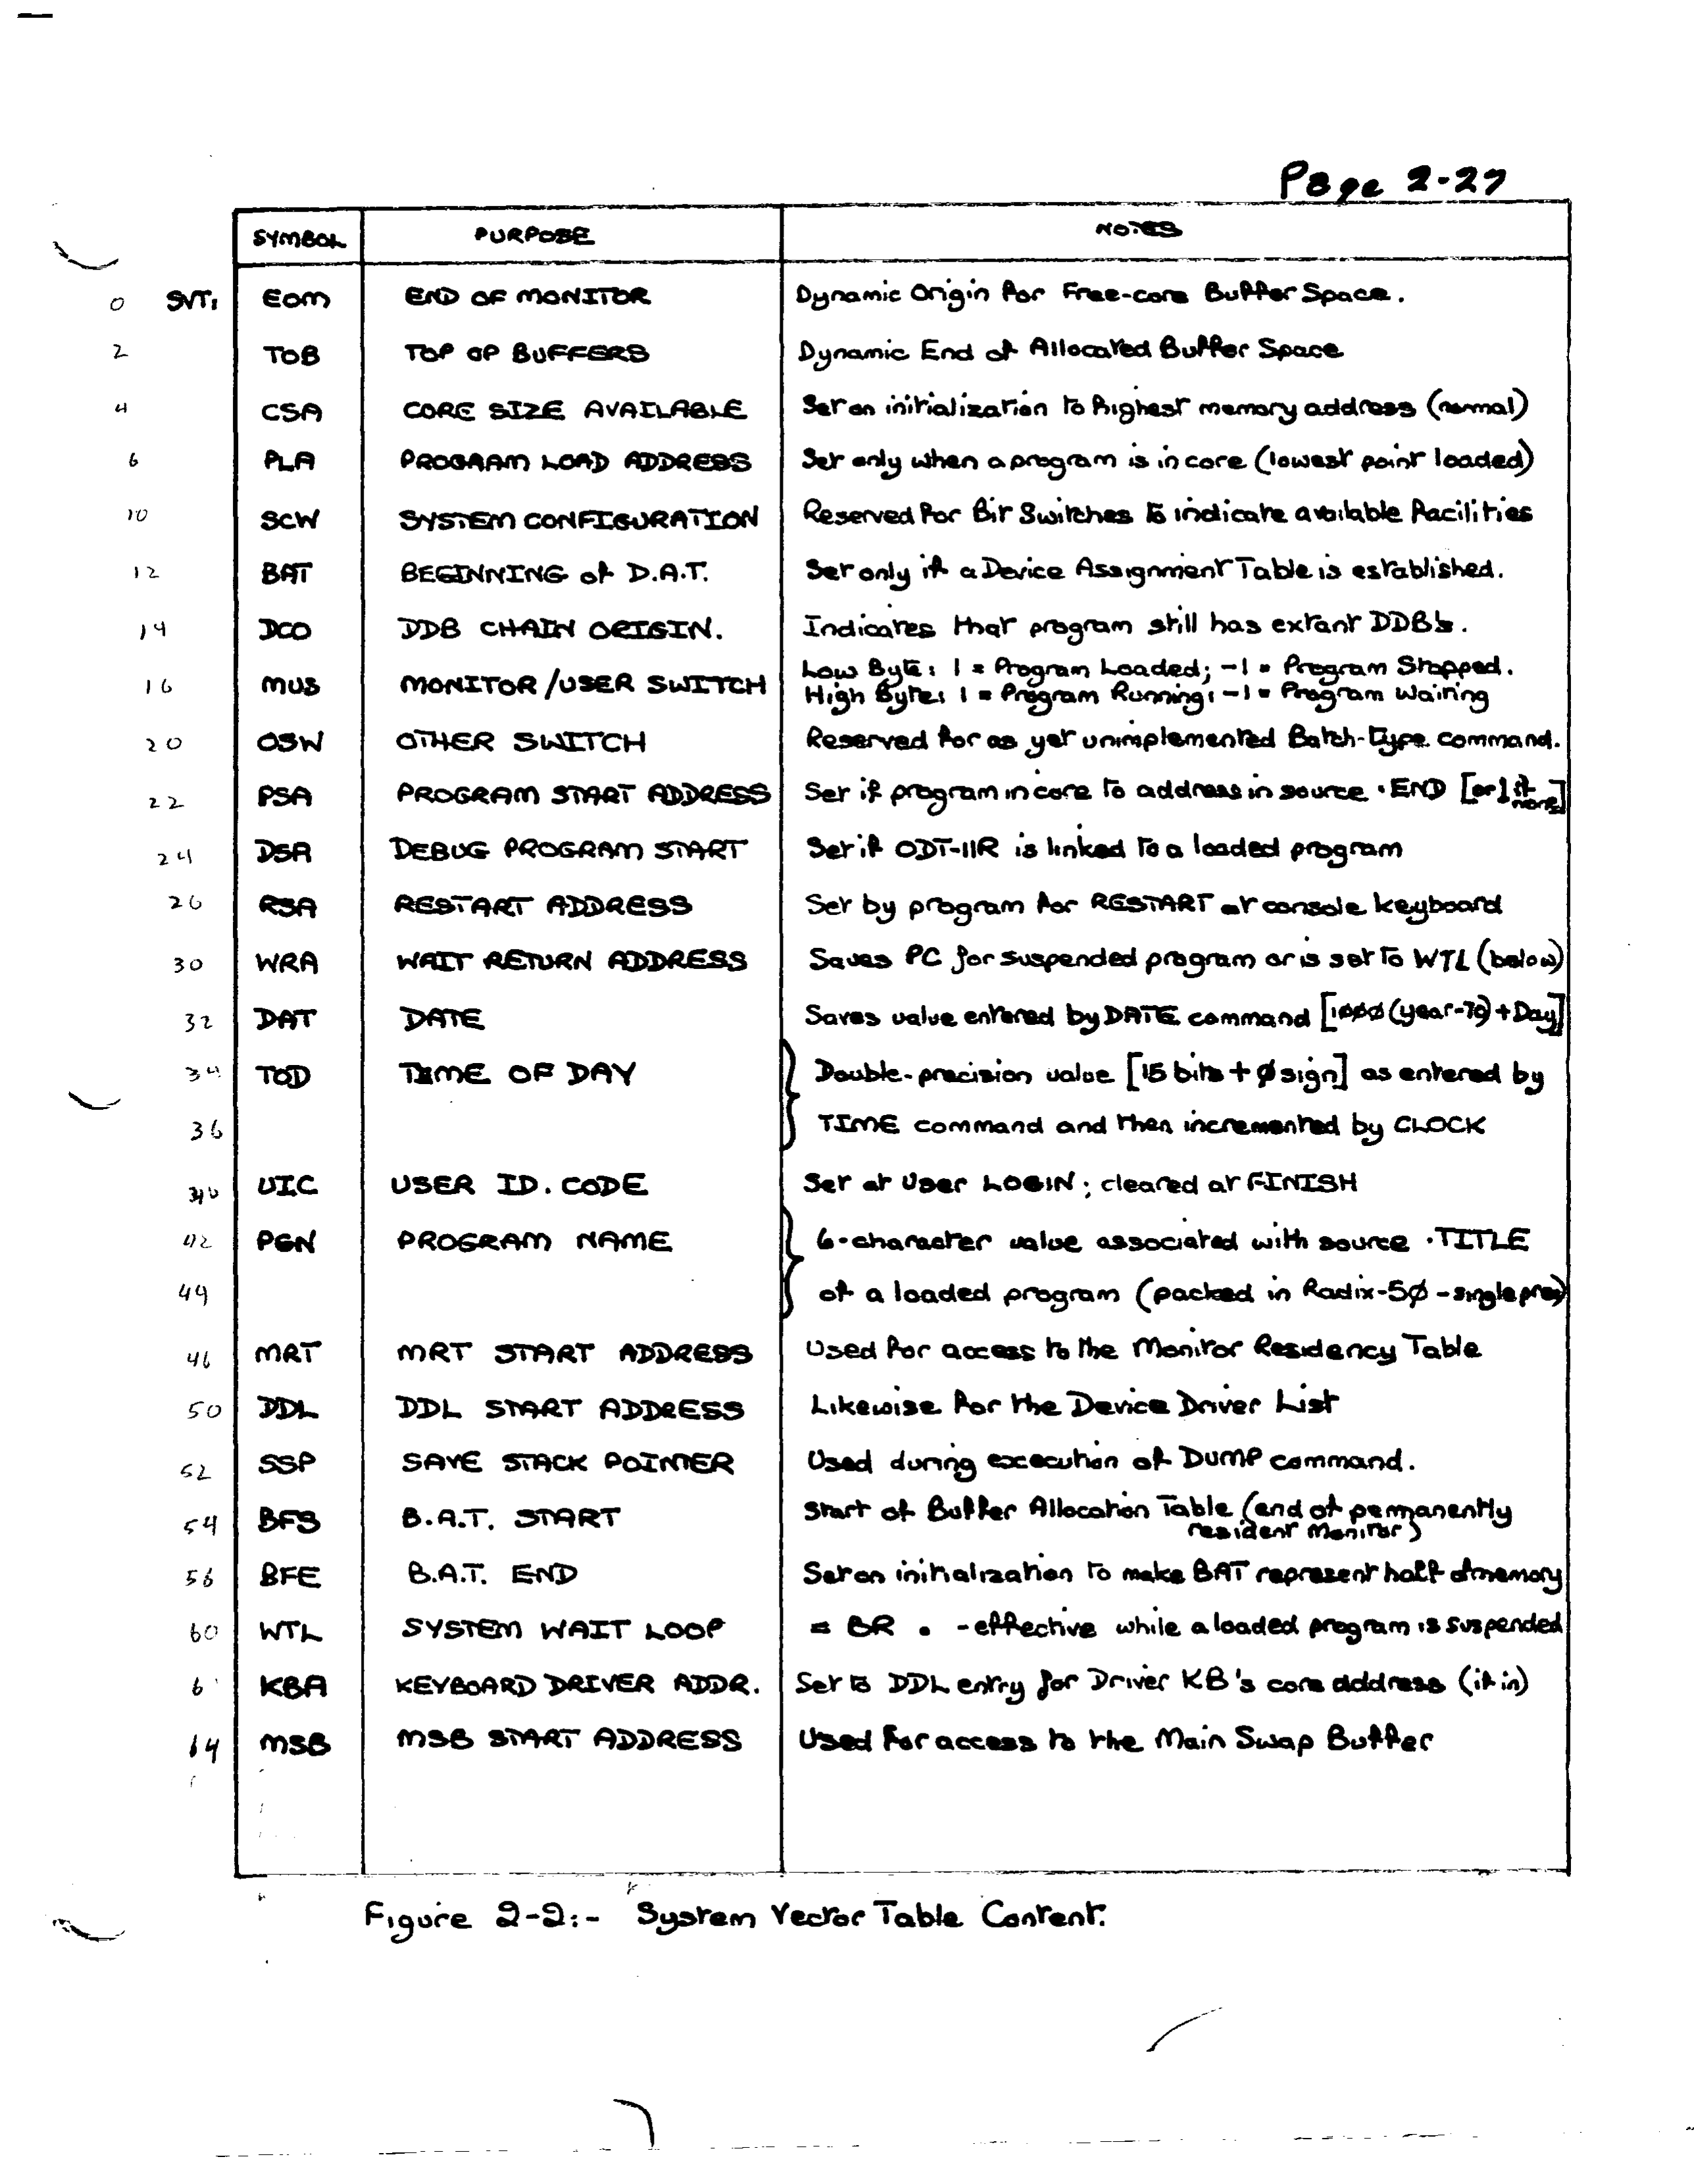 Page 2-27
SYMBOL PURPOSE NOTES
0 SVT: EOM END OF MONITOR Dynamic Origin for Free-core Buffer Space.
2 TOB TOP OF BUFFERS Dynamic End of Allocated Buffer Space
4 CSA CORE SIZE AVAILABLE Set on initialization to highest memory address (normal)
6 PLA PROGRAM LOAD ADDRESS Set only when a program is in core (lowest point loaded)
10 SCW SYSTEM CONFIGURATION Reserved for Bit Switches to indicate available facilities
12 BAT BEGINNING of D.A.T. Set only if a Device Assignment Table is established.
14 DCO DDB CHAIN ORIGIN. Indicates that program still has extant DDB's.
16 MUS MONITOR/USER SWITCH Low Byte: 1 = Program Loaded; -1 = Program Stopped.
High Byte: 1 = Program Running; -1 = Program Waiting
20 OSW OTHER SWITCH Reserved for as yet unimplemented Batch-type command.
22 PSA PROGRAM START ADDRESS Set if program in core to address in source .END [or 1 if none]
24 DSA DEBUG PROGRAM START Set if ODT-11R is linked to a loaded program
26 RSA RESTART ADDRESS Set by program for RESTART at console keyboard
30 WRA WAIT RETURN ADDRESS Saves PC for suspended program or is set to WTL (below)
32 DAT DATE Saves value entered by DATE command [1ØØØ (year-70) + Day]
34 TOD TIME OF DAY Double-precision value [15 bits + Ø sign] as entered by
36 TIME command and then incremented by CLOCK
UIC USER ID. CODE Set at User LOGIN; cleared at FINISH
42 PGN PROGRAM NAME 6-character value associated with source .TITLE
44 of a loaded program (packed in Radix-5Ø - single prec)
46 MRT MRT START ADDRESS Used for access to the Monitor Residency Table
50 DDL DDL START ADDRESS Likewise for the Device Driver List
52 SSP SAVE STACK POINTER Used during excecution of DUMP command.
54 BFS B.A.T. START Start of Buffer Allocation Table (end of permanently
resident Monitor)
56 BFE B.A.T. END Set on initialization to make BAT represent half of memory
60 WTL SYSTEM WAIT LOOP = BR . - effective while a loaded program is suspended
6 KBA KEYBOARD DRIVER ADDR. Set to DDL entry for Driver KB's core address (if in)
64 MSB MSB START ADDRESS Used for access to the Main Swap Buffer
Figure 2-2:- System Vector Table Content.